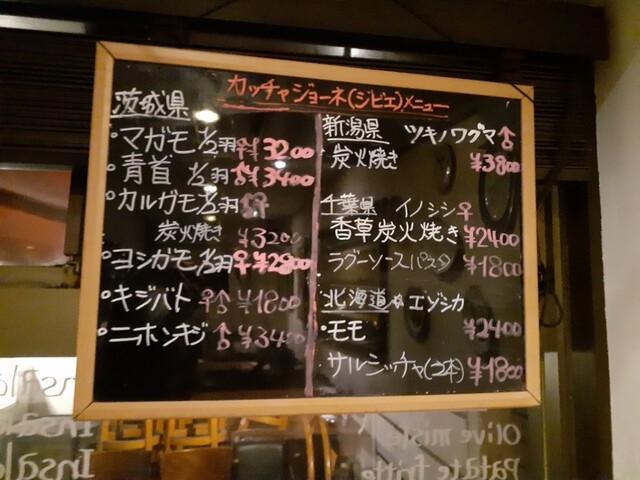 カッチャジョーネ(ジビエ)メニュー
茨城県
・マガモ1/2羽♀¥3200
・青首1/2羽♂¥3400
・カルガモ1/2羽
炭火焼き ¥3200
・ヨシガモ1/2羽♀¥2800
・キジバト♀♂¥1800
・ニホンキジ♂¥3400
新潟県 ツキノワグマ♂
炭火焼き ¥3800
千葉県 イノシシ♀
香草炭火焼き¥2400
ラグーソースパスタ ¥1800
北海道 エゾシカ
・モモ ¥2400
サルシッチャ(2本)¥1800
Insala
Insala
Insala
Olive miste
Patate fritte